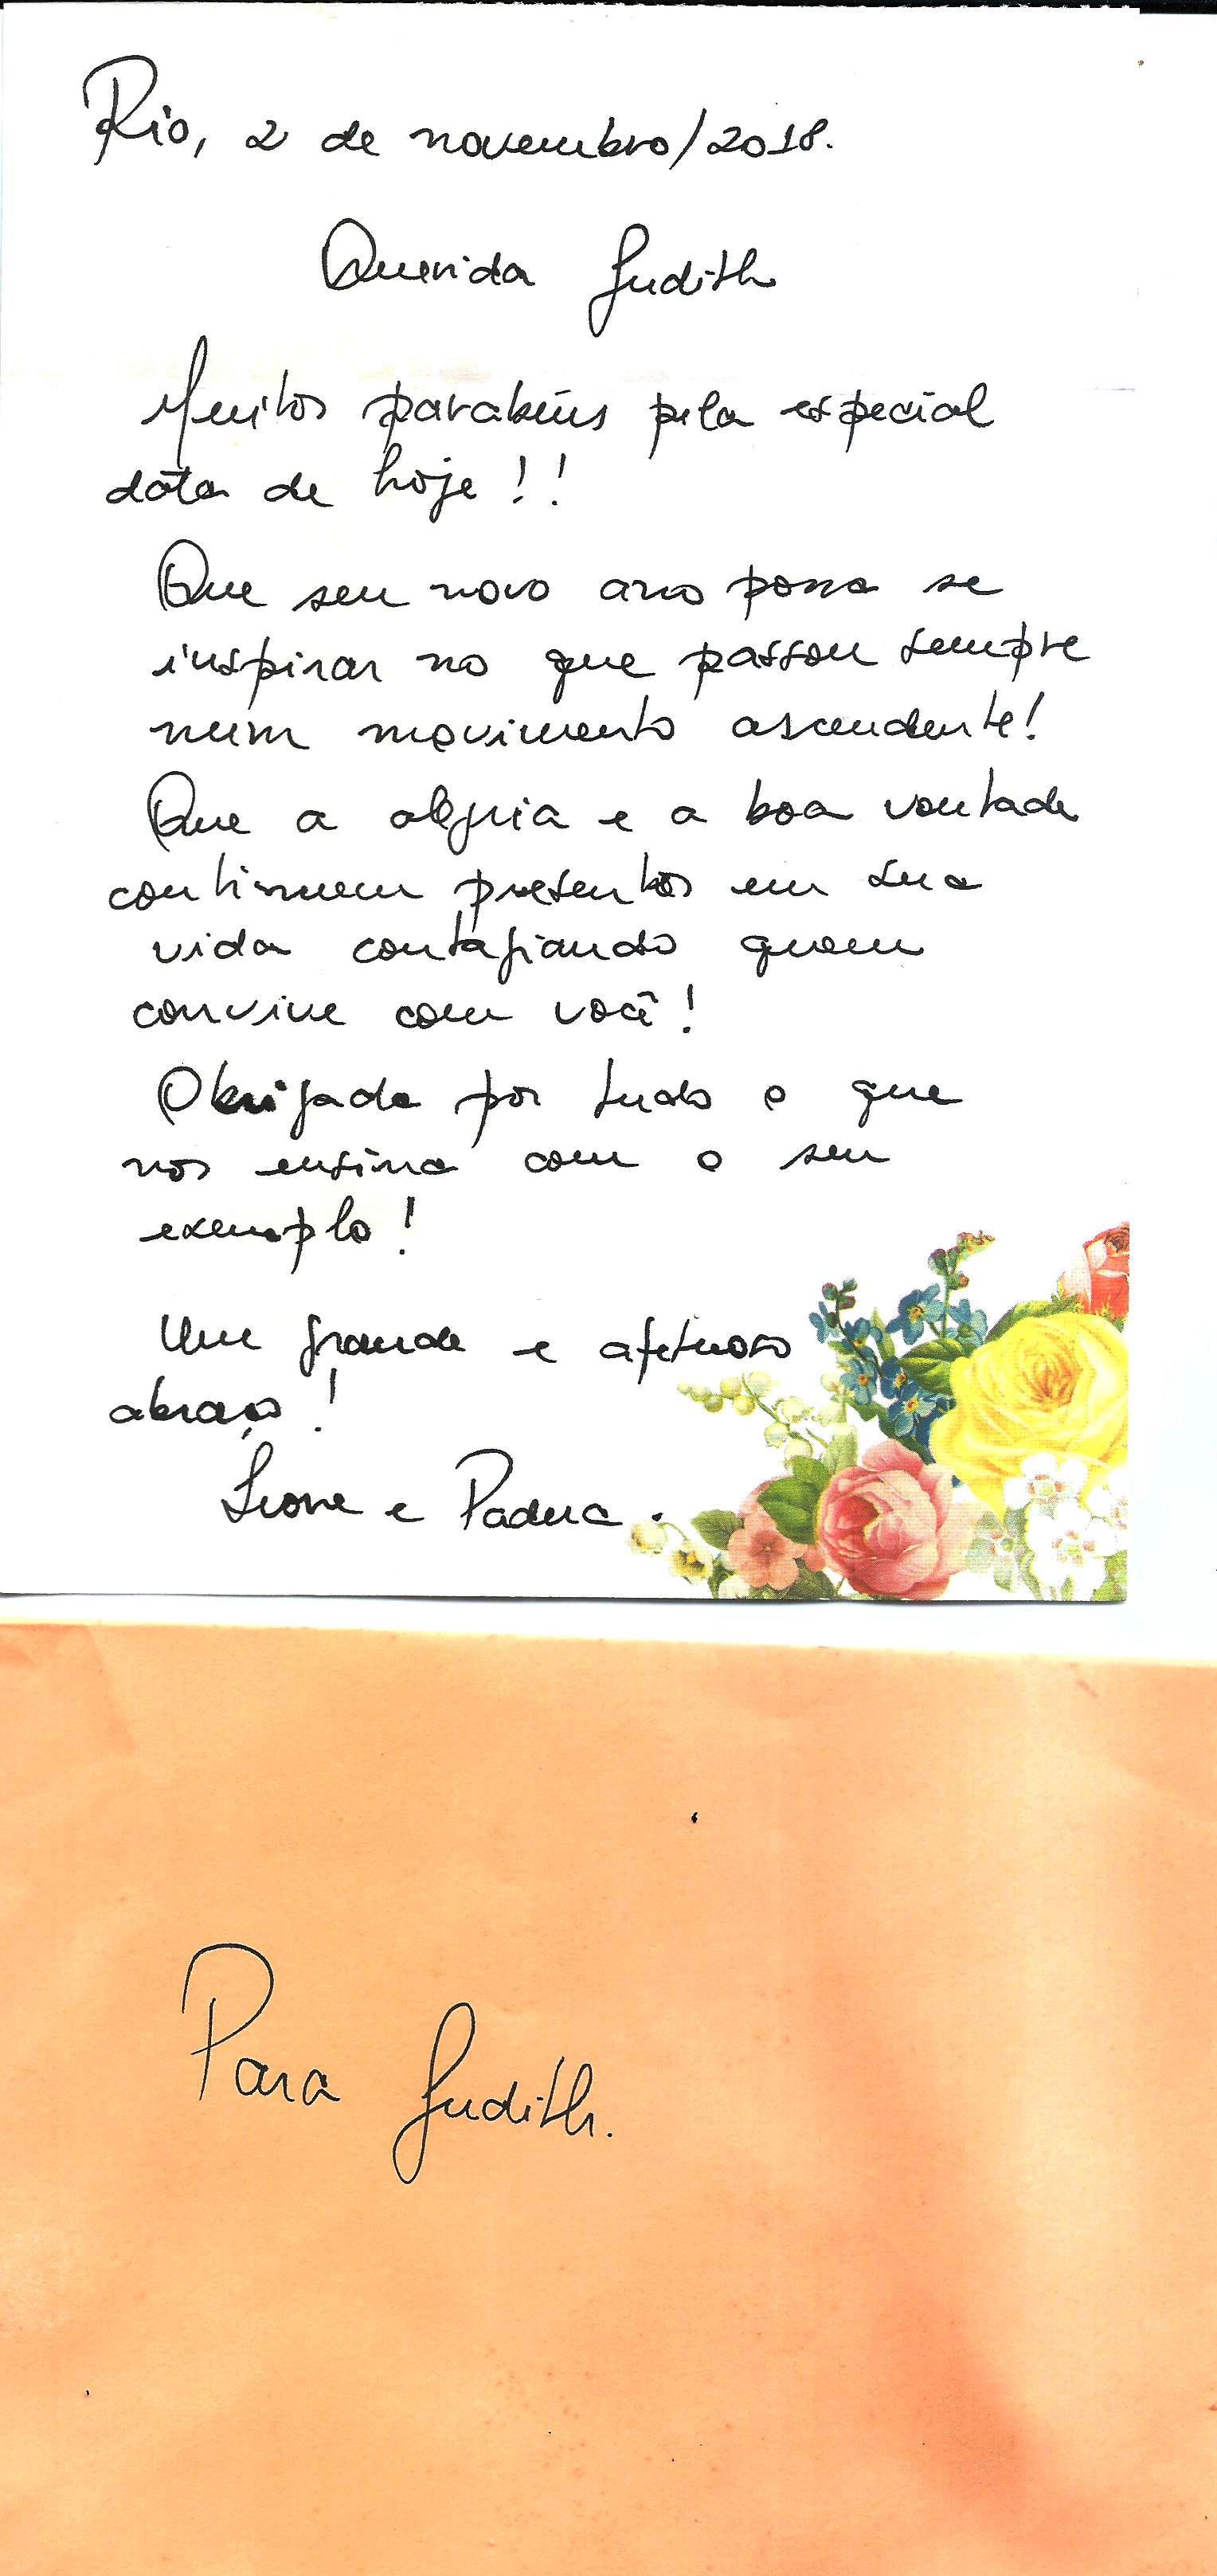 Rio, 2 de novembro/2018.
Querida Judith
Muitos parabéns pela especial
data de hoje!!
Que seu novo ano possa se
inspirar no que passou sempre
num movimento ascendente!
Que a alegria e a boa vontade
continuem presentes em sua
vida contagiando quem
convive com você!
Obrigada por tudo o que
nos ensina com o seu
exemplo!
Um grande e afetuoso
abraço!
e Padua.
Para Judith.